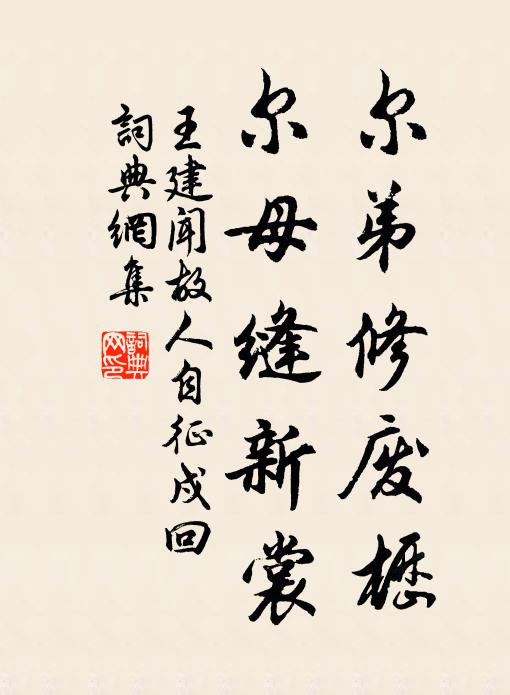 尔弟修废櫪
尔母縫新裳
王建闻故人自征戍回
詞典網集
詞典网印